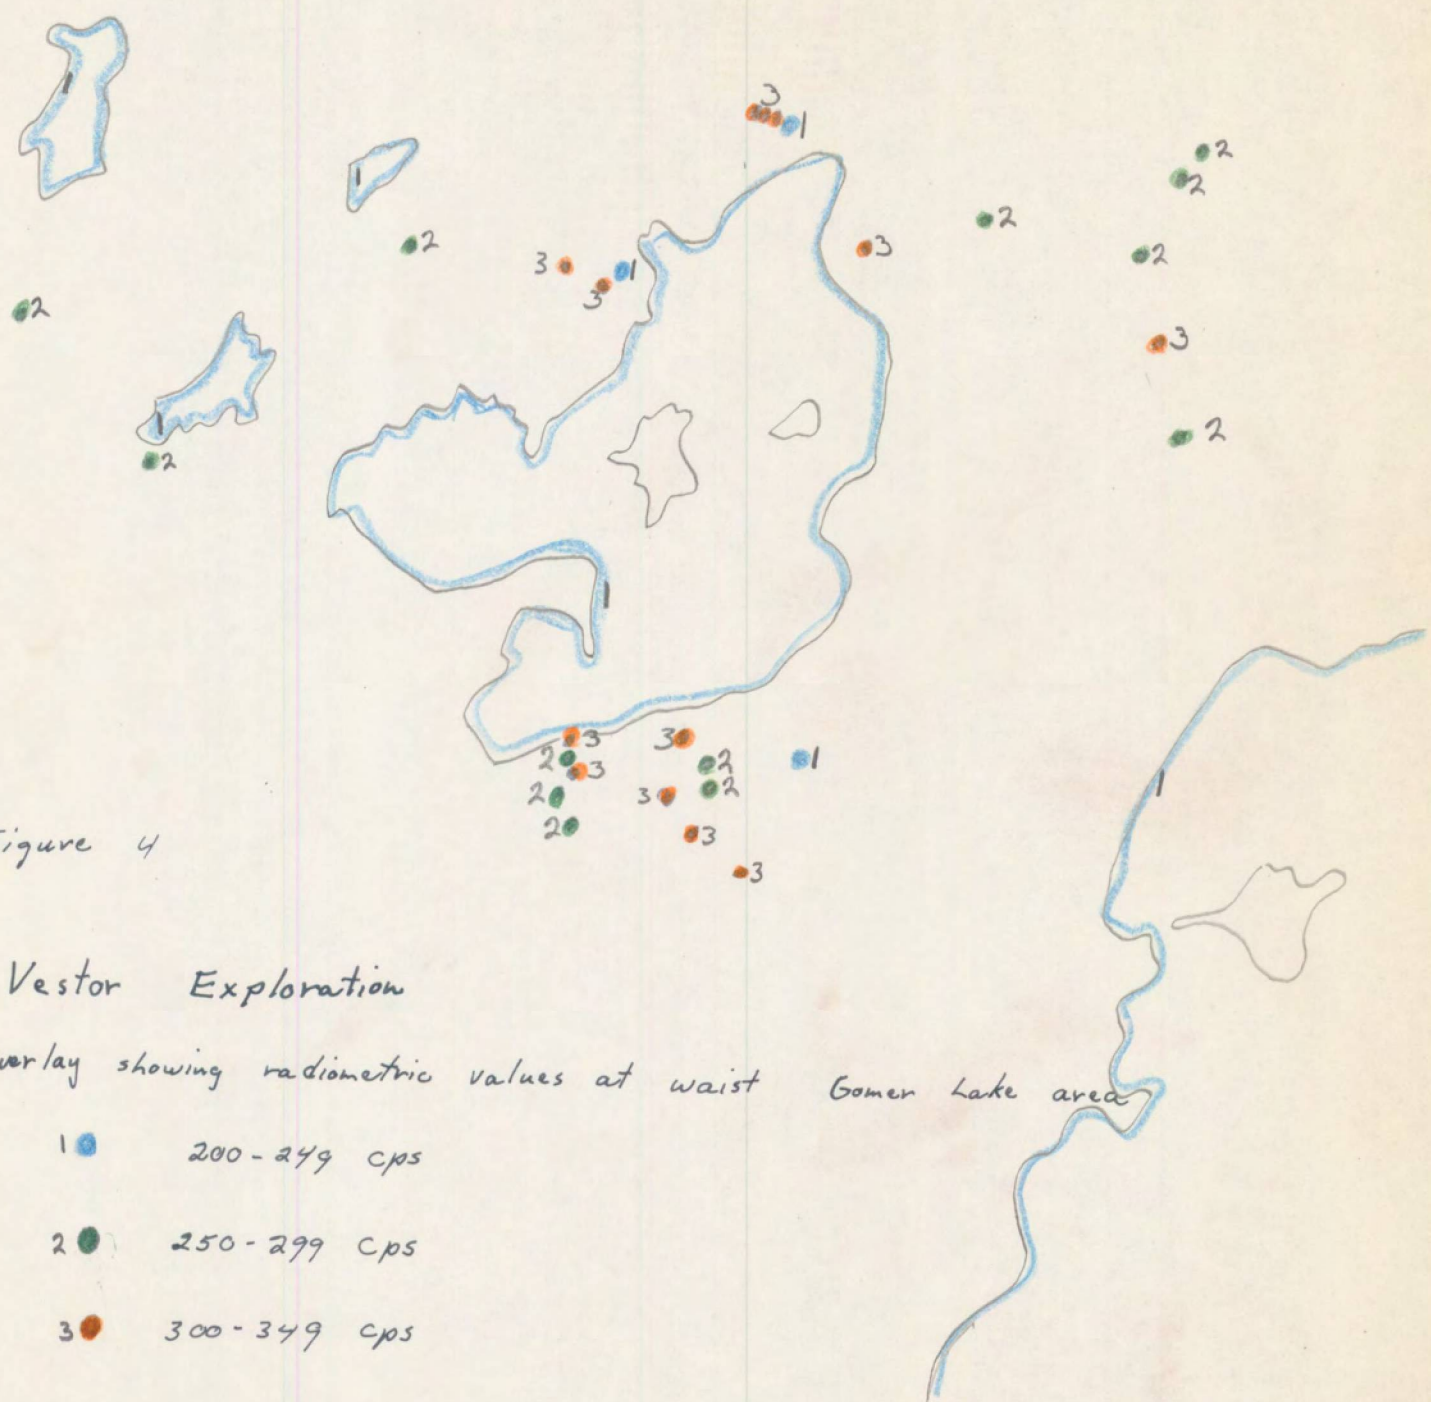 3
1
2
2
2
2
3
3
1
2
3
2
3
2
2
3
3
2
2
1
3
2
2
3
2
3
igure 4
3
Vestor Exploration
verlay showing radiometric values at waist Gomer Lake area
1 200-249 cps
2 250-299 cps
3 300-349 cps